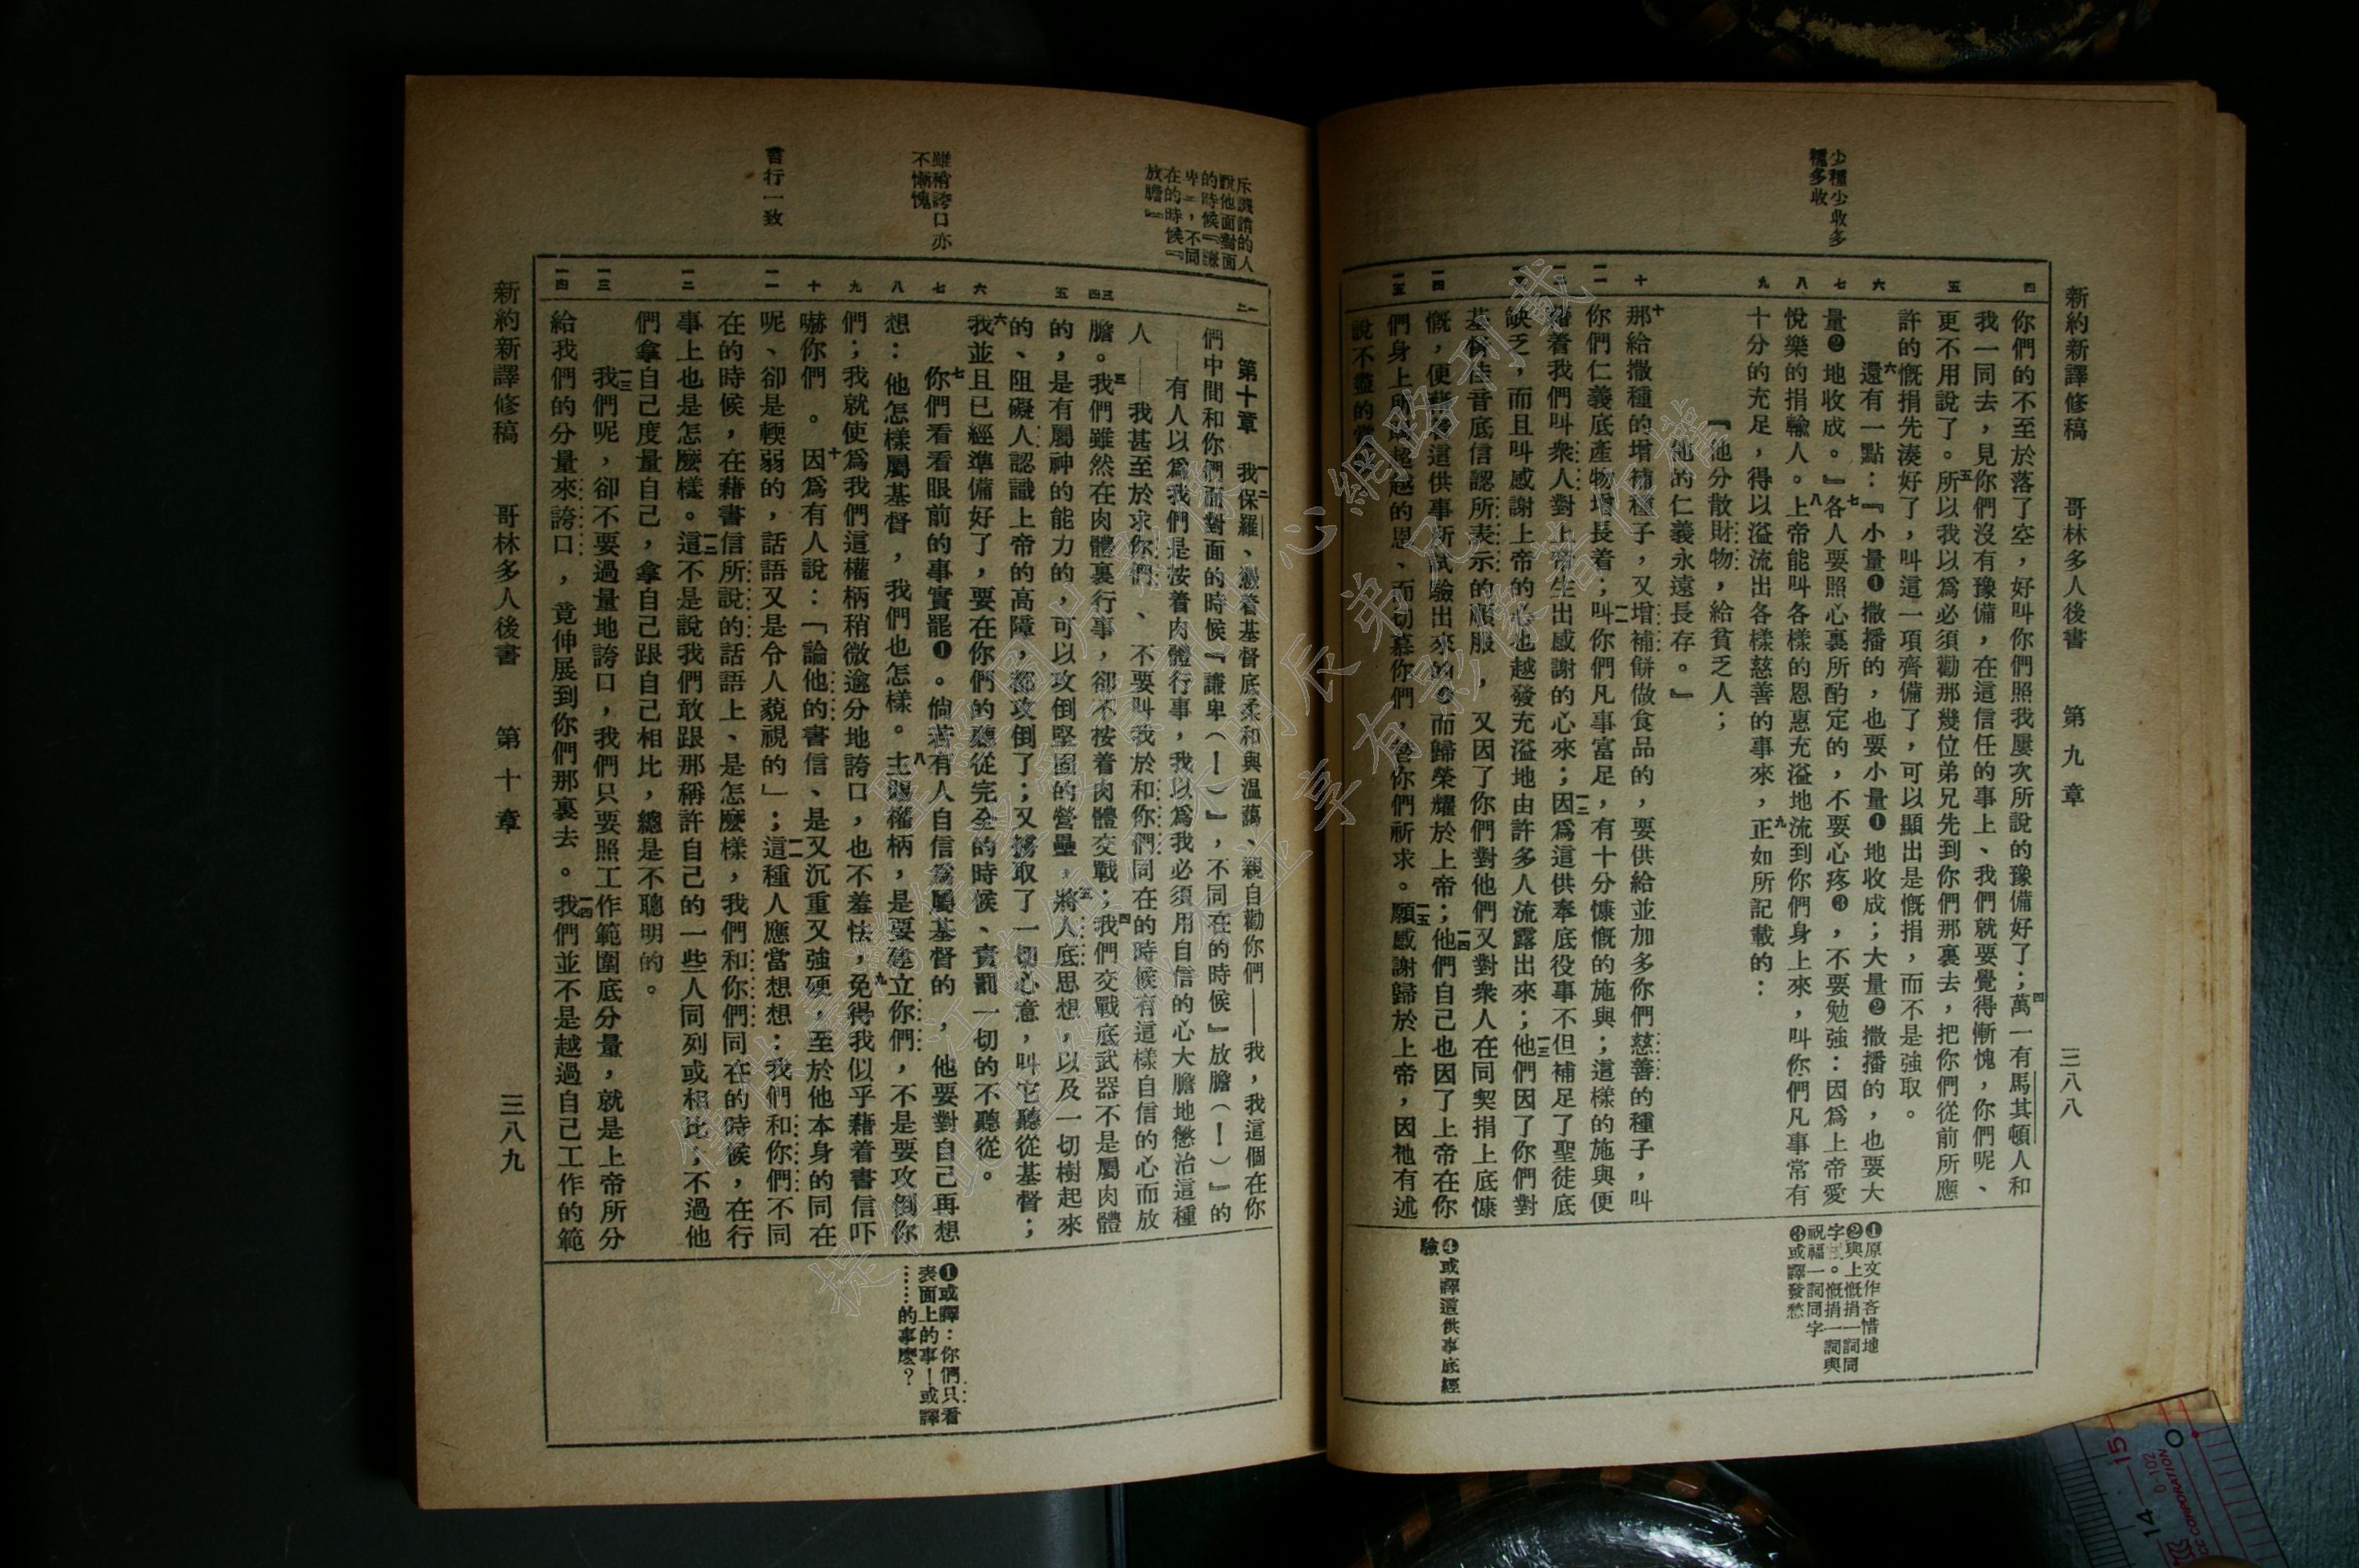 新約新譯修稿 哥林多人後書 第九章 三八八
少種少收多
種多收
四
五
六
七
八
九
十
一一
一二
一三
一四
一五
你們的不至於落了空，好叫你們照我屢次所說的豫備好了；四萬一有馬其頓人和
我一同去，見你們沒有豫備，在這信任的事上、我們就要覺得慚愧，你們呢、
更不用說了。五所以我以爲必須勸那幾位弟兄先到你們那裏去，把你們從前所應
許的慨捐先湊好了，叫這一項齊備了，可以顯出是慨捐，而不是強取。
六還有一點：『小量❶撒播的，也要小量❶地收成；大量❷撒播的，也要大
量❷地收成。』七各人要照心裏所酌定的，不要心疼❸，不要勉強：因爲上帝愛
悅樂的捐輸人。八上帝能叫各樣的恩惠充溢地流到你們身上來，叫你們凡事常有
十分的充足，得以溢流出各樣慈善的事來，九正如所記載的：
『他分散財物，給貧乏人；
他的仁義永遠長存。』
十那給撒種的增補種子，又增補餅做食品的，要供給並加多你們慈善的種子，叫
你們仁義底產物增長着；一一叫你們凡事富足，有十分慷慨的施與；這樣的施與便
藉着我們叫衆人對上帝生出感謝的心來；一二因爲這供奉底役事不但補足了聖徒底
缺乏，而且叫感謝上帝的心也越發充溢地由許多人流露出來；一三他們因了你們對
基督佳音底信認所表示的順服，又因了你們對他們又對衆人在同契捐上底慷
慨，便藉着這供事所試驗出來的❹而歸榮耀於上帝；一四他們自己也因了上帝在你
們身上所 超越的恩、而切慕你們，替你們祈求。一五願感謝歸於上帝，因祂有述
說不盡的
❶原文作吝惜地
❷與上慨捐一詞同
字 。慨捐一詞與
祝福一詞同字
❸或譯發愁
❹或譯這供事底經
驗
斥譏誚的人
說他面對面
的時候『謙
卑』，不同
在的時候『
放膽』
雖稍誇口亦
不慚愧
言行一致
一二
三四
五
六
七
八
九
十
一一
一二
一三
一四
第十章 一二我保羅、憑着基督底柔和與溫藹、親自勸你們——我，我這個在你
們中間和你們面對面的時候『謙卑（！）』，不同在的時候』放膽（！）』的
——有人以爲我們是按着肉體行事，我以爲我必須用自信的心大膽地懲治這種
人——我甚至於求你們、不要叫我於和你們同在的時候有這樣自信的心而放
膽。三我們雖然在肉體裏行事，卻不按着肉體交戰；四我們交戰底武器不是屬肉體
的，是有屬神的能力的，可以攻倒堅固的營壘，五將人底思想，以及一切樹起來
的、阻礙人認識上帝的高障，都攻倒了；又擄取了一切心意，叫它聽從基督；
六我並且已經準備好了，要在你們的聽從完全的時候、責罰一切的不聽從。
七你們看看眼前的事實罷❶。倘若有人自信爲屬基督的，他要對自己再想
想：他怎樣屬基督，我們也怎樣。八主賜權柄，是要建立你們，不是要攻倒你
們；我就使爲我們這權柄稍微逾分地誇口，也不羞怯，九免得我似乎藉着書信吓
嚇你們。十因爲有人說：「論他的書信、是又沉重又強硬，至於他本身的同在
呢、卻是輭弱的，話語又是令人藐視的」；一一這種人應當想想：我們和你們不同
在的時候，在藉書信所說的話語上、是怎麼樣，我們和你們同在的時候，在行
事上也是怎麼樣。一二這不是說我們敢跟那稱許自己的一些人同列或相比；不過他
們拿自己度量自己，拿自己跟自己相比，總是不聰明的。
一三我們呢，卻不要過量地誇口，我們只要照工作範圍底分量，就是上帝所分
給我們的分量來誇口，竟伸展到你們那裏去。一四我們並不是越過自己工作的範
❶或譯：你們只看
表面上的事！或譯
……的事麼？
新約新譯修稿 哥林多人後書 第十章 三八九
15
14
0
D-102
CORPORATION